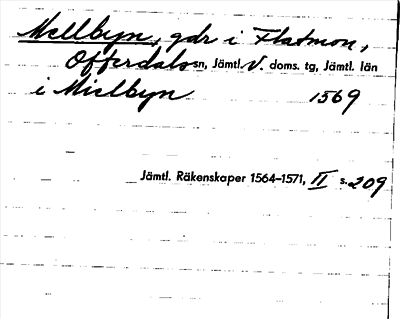 Mellbyn, gdr i Flatmon,
Offerdals sn, Jämtl. V. doms. tg, Jämtl. län
i Mielbyn 1569
Jämtl. Räkenskaper 1564–1571, II s. 209